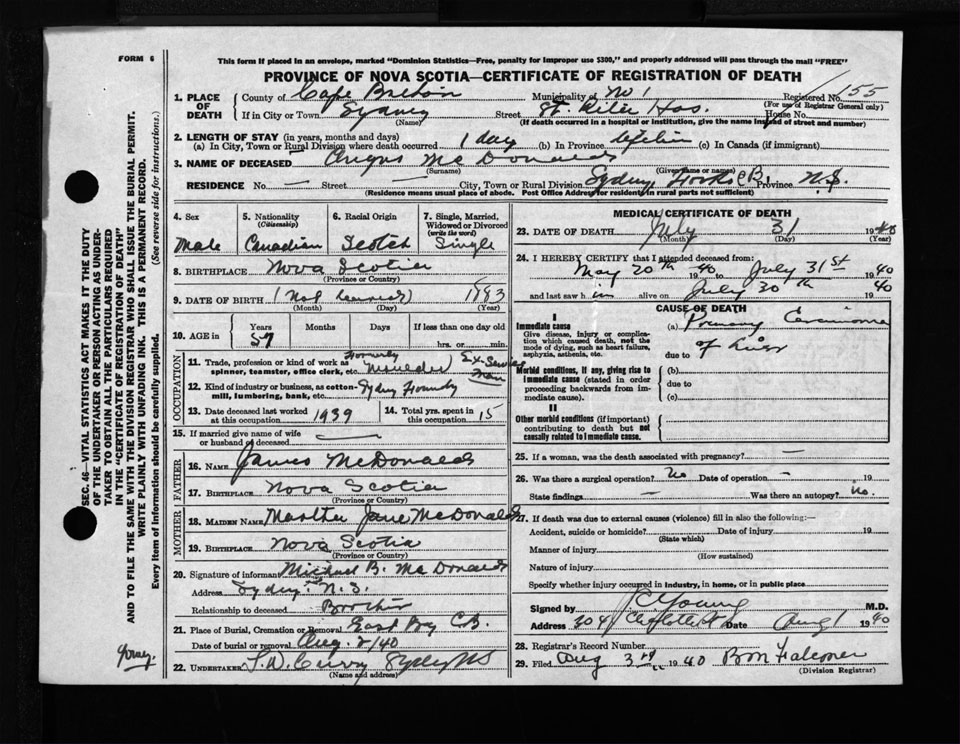 FORM 6
This form if placed in an envelope, marked "Dominion Statistics—Free, penalty for improper use $300," and properly addressed will pass through the mail "FREE"
PROVINCE OF NOVA SCOTIA—CERTIFICATE OF REGISTRATION OF DEATH
1. PLACE OF DEATH
County of Cape Breton Municipality of No 1 Registered No. 155
(For use of Registrar General only)
If in City or Town Sydney Street St. Hos. House No.
(Name) (If death occurred in a hospital or institution, give the name instead of street and number)
2. LENGTH OF STAY (in years, months and days)
(a) In City, Town or Rural Division where death occurred 1 day (b) In Province Lifetime (c) In Canada (if immigrant)
3. NAME OF DECEASED Angus McDonald
(Surname) (Given name or names)
RESIDENCE No. — Street — City, Town or Rural Division Sydney C.B. Province N.S.
(Residence means usual place of abode. Post Office Address for residents in rural parts not sufficient)
SEC. 46—VITAL STATISTICS ACT MAKES IT THE DUTY
OF THE UNDERTAKER OR PERSON ACTING AS UNDER-
TAKER TO OBTAIN ALL THE PARTICULARS REQUIRED
IN THE "CERTIFICATE OF REGISTRATION OF DEATH"
AND TO FILE THE SAME WITH THE DIVISION REGISTRAR WHO SHALL ISSUE THE BURIAL PERMIT.
WRITE PLAINLY WITH UNFADING INK. THIS IS A PERMANENT RECORD.
Every item of information should be carefully supplied. (See reverse side for instructions.)
4. Sex 5. Nationality 6. Racial Origin 7. Single, Married,
(Citizenship) Widowed or Divorced
(write the word)
Male Canadian Scotch Single
8. BIRTHPLACE Nova Scotia
(Province or Country)
9. DATE OF BIRTH (Not 1883
(Month) (Day) (Year)
10. AGE in Years Months Days If less than one day old
57 hrs. or min.
OCCUPATION
11. Trade, profession or kind of work as Formerly Moulder Ex-Service Man
spinner, teamster, office clerk, etc.
12. Kind of industry or business, as cotton-
mill, lumbering, bank, etc. Sydney Foundry
13. Date deceased last worked at this occupation 1939 14. Total yrs. spent in this occupation 15
15. If married give name of wife or husband of deceased —
FATHER
16. NAME James McDonald
17. BIRTHPLACE Nova Scotia
(Province or Country)
MOTHER
18. MAIDEN NAME Martha Jane McDonald
19. BIRTHPLACE Nova Scotia
(Province or Country)
20. Signature of informant Michael B. McDonald
Address Sydney N.S.
Relationship to deceased Brother
21. Place of Burial, Cremation or Removal East Bay C.B.
Date of burial or removal Aug. 2/40
22. UNDERTAKER Curry Sydney NS
(Name and address)
MEDICAL CERTIFICATE OF DEATH
23. DATE OF DEATH July 31 1940
(Month) (Day) (Year)
24. I HEREBY CERTIFY that I attended deceased from:
May 20th 1940 to July 31st 1940
and last saw him alive on July 30th 1940
CAUSE OF DEATH
I
Immediate cause (a) Primary Carcinoma
Give disease, injury or complica-
tion which caused death, not the of liver
mode of dying, such as heart failure,
asphyxia, asthenia, etc. due to
Morbid conditions, if any, giving rise to (b)
immediate cause (stated in order due to
proceeding backwards from im-
mediate cause). (c)
II
Other morbid conditions (if important)
contributing to death but not
causally related to immediate cause.
25. If a woman, was the death associated with pregnancy? —
26. Was there a surgical operation? No Date of operation — 19
State findings — Was there an autopsy? No.
27. If death was due to external causes (violence) fill in also the following:—
Accident, suicide or homicide? Date of injury 19
(State which)
Manner of injury
(How sustained)
Nature of injury
Specify whether injury occurred in industry, in home, or in public place
Signed by Young M.D.
Address 304 Charlotte St Date Aug 1 1940
28. Registrar's Record Number
29. Filed Aug 3rd 1940 Falconer
(Division Registrar)